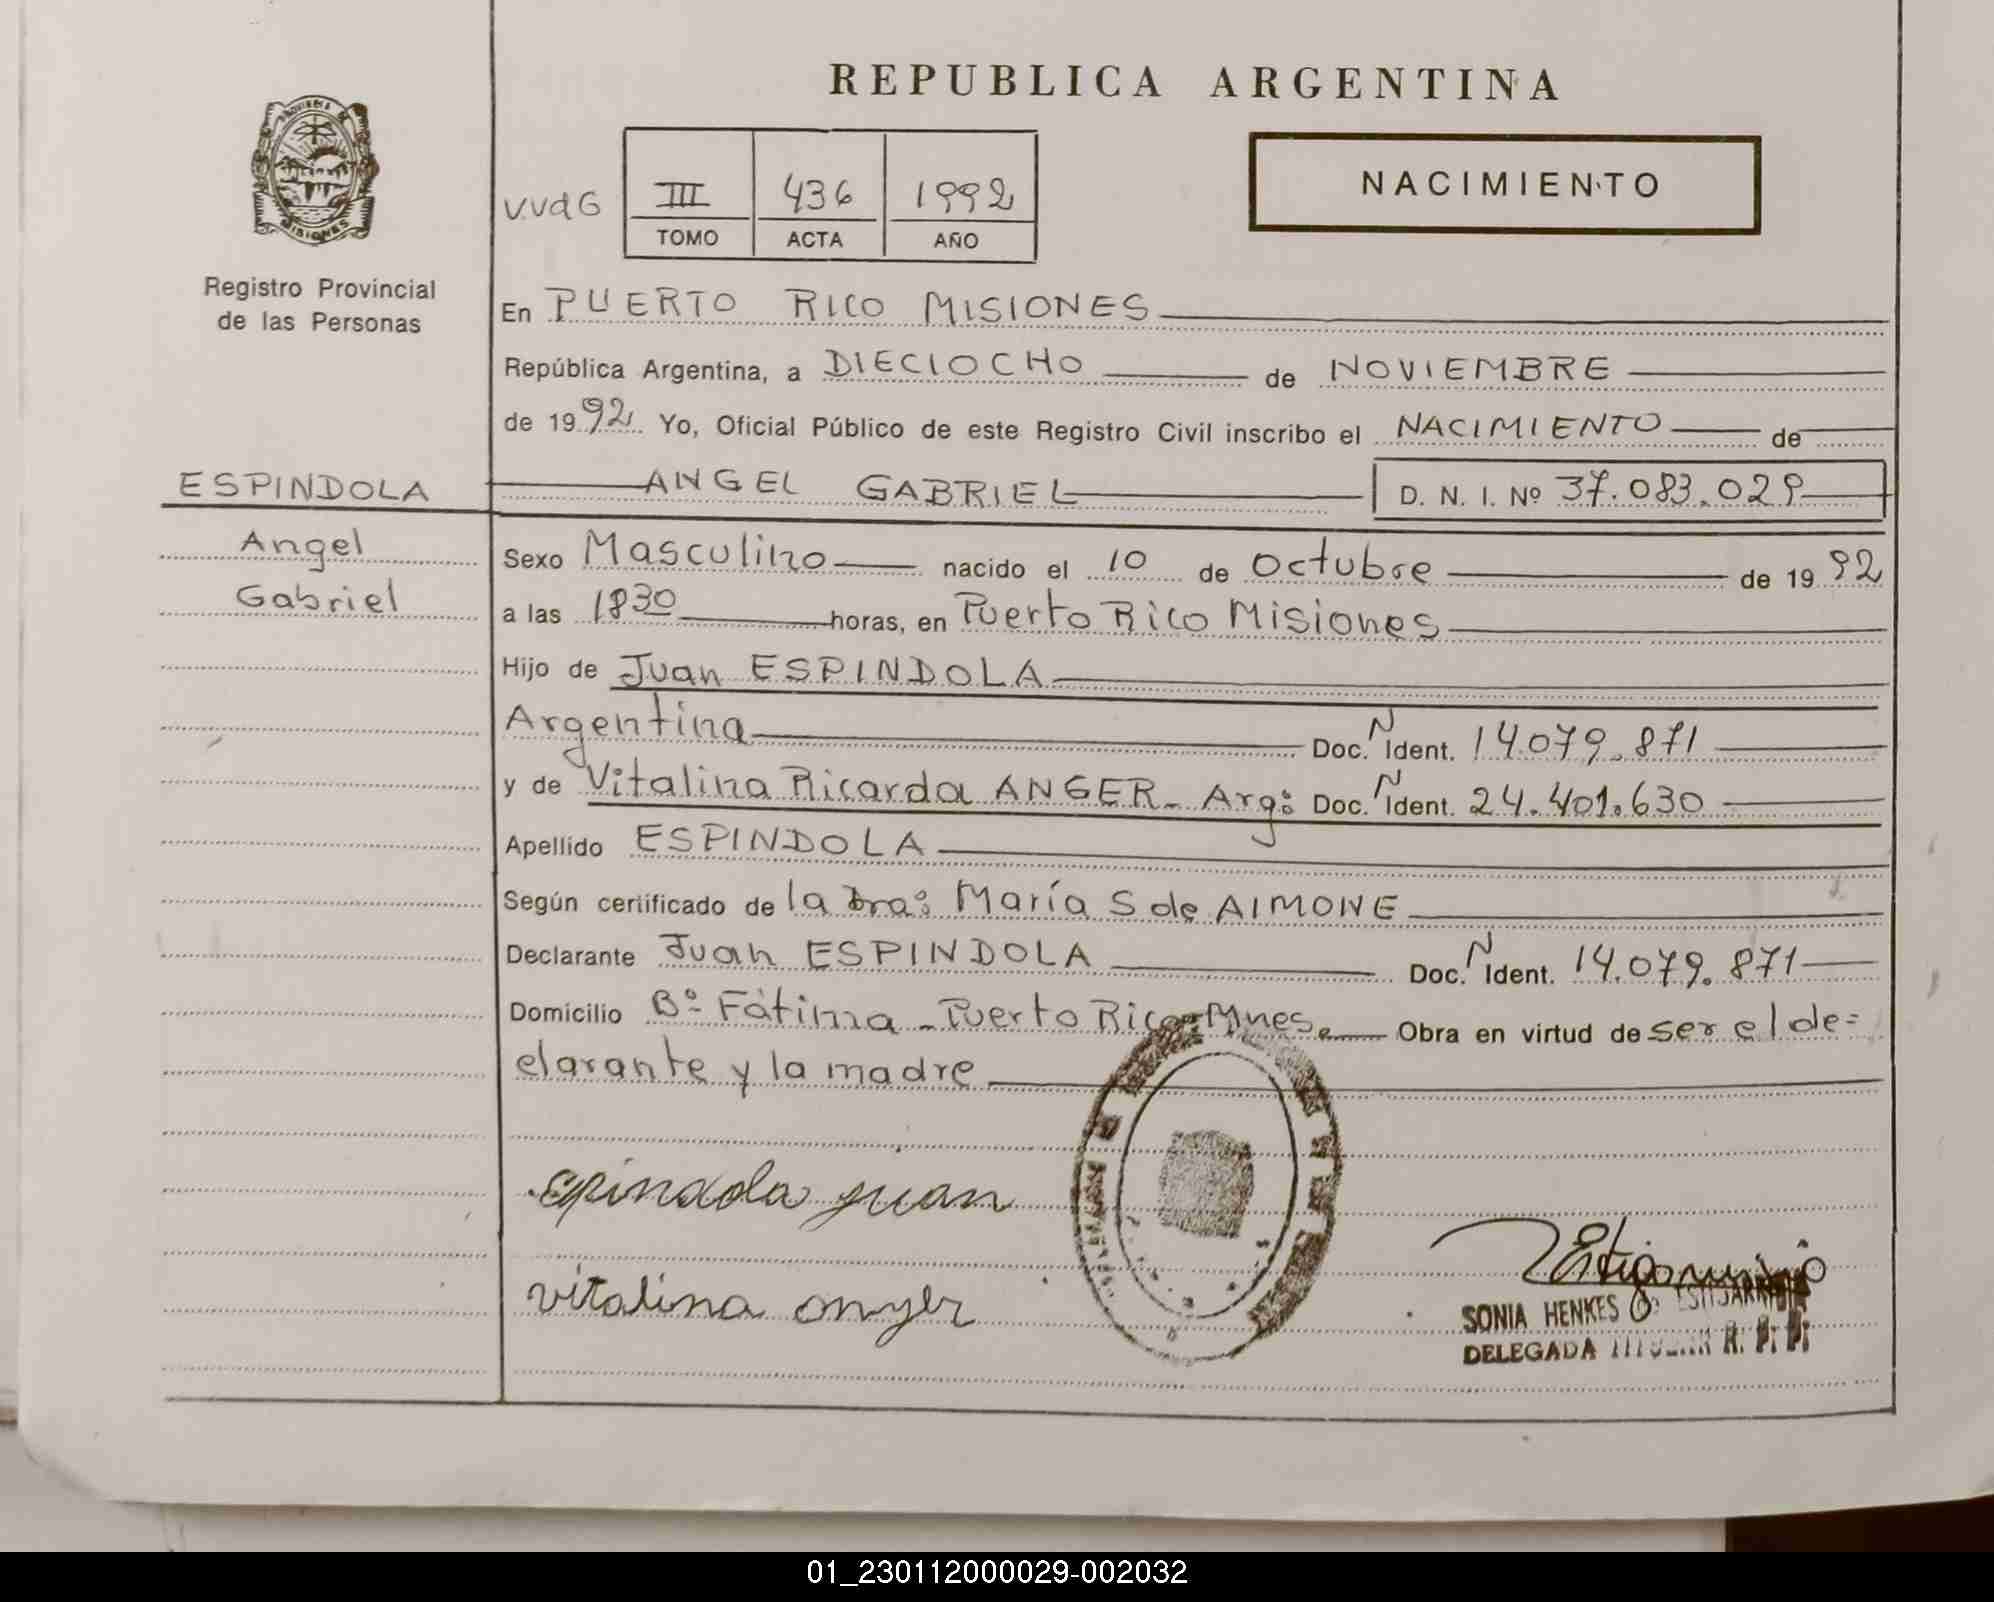 REPUBLICA ARGENTINA
NACIMIENTO
VVdG
III 436 1992
TOMO ACTA AÑO
PROVINCIA DE MISIONES
Registro Provincial
de las Personas
En PUERTO RICO MISIONES
República Argentina, a DIECIOCHO de NOVIEMBRE
de 1992 Yo, Oficial Público de este Registro Civil inscribo el NACIMIENTO de
ESPINDOLA ANGEL GABRIEL D. N. I. Nº 37.083.029
Angel
Gabriel
Sexo Masculino nacido el 10 de Octubre de 1992
a las 1830 horas, en Puerto Rico Misiones
Hijo de Juan ESPINDOLA
Argentina Doc. N Ident. 14.079.871
y de Vitalina Ricarda ANGER - Arg: Doc. N Ident. 24.401.630
Apellido ESPINDOLA
Según certificado de la Dra: María S de AIMONE
Declarante Juan ESPINDOLA Doc. N Ident. 14.079.871
Domicilio Bº Fátima - Puerto Rico - Mnes. Obra en virtud de ser el de=
clarante y la madre
espindola juan
vitalina anger
SONIA HENKES
DELEGADA TITULAR R. P. P.
01_230112000029-002032